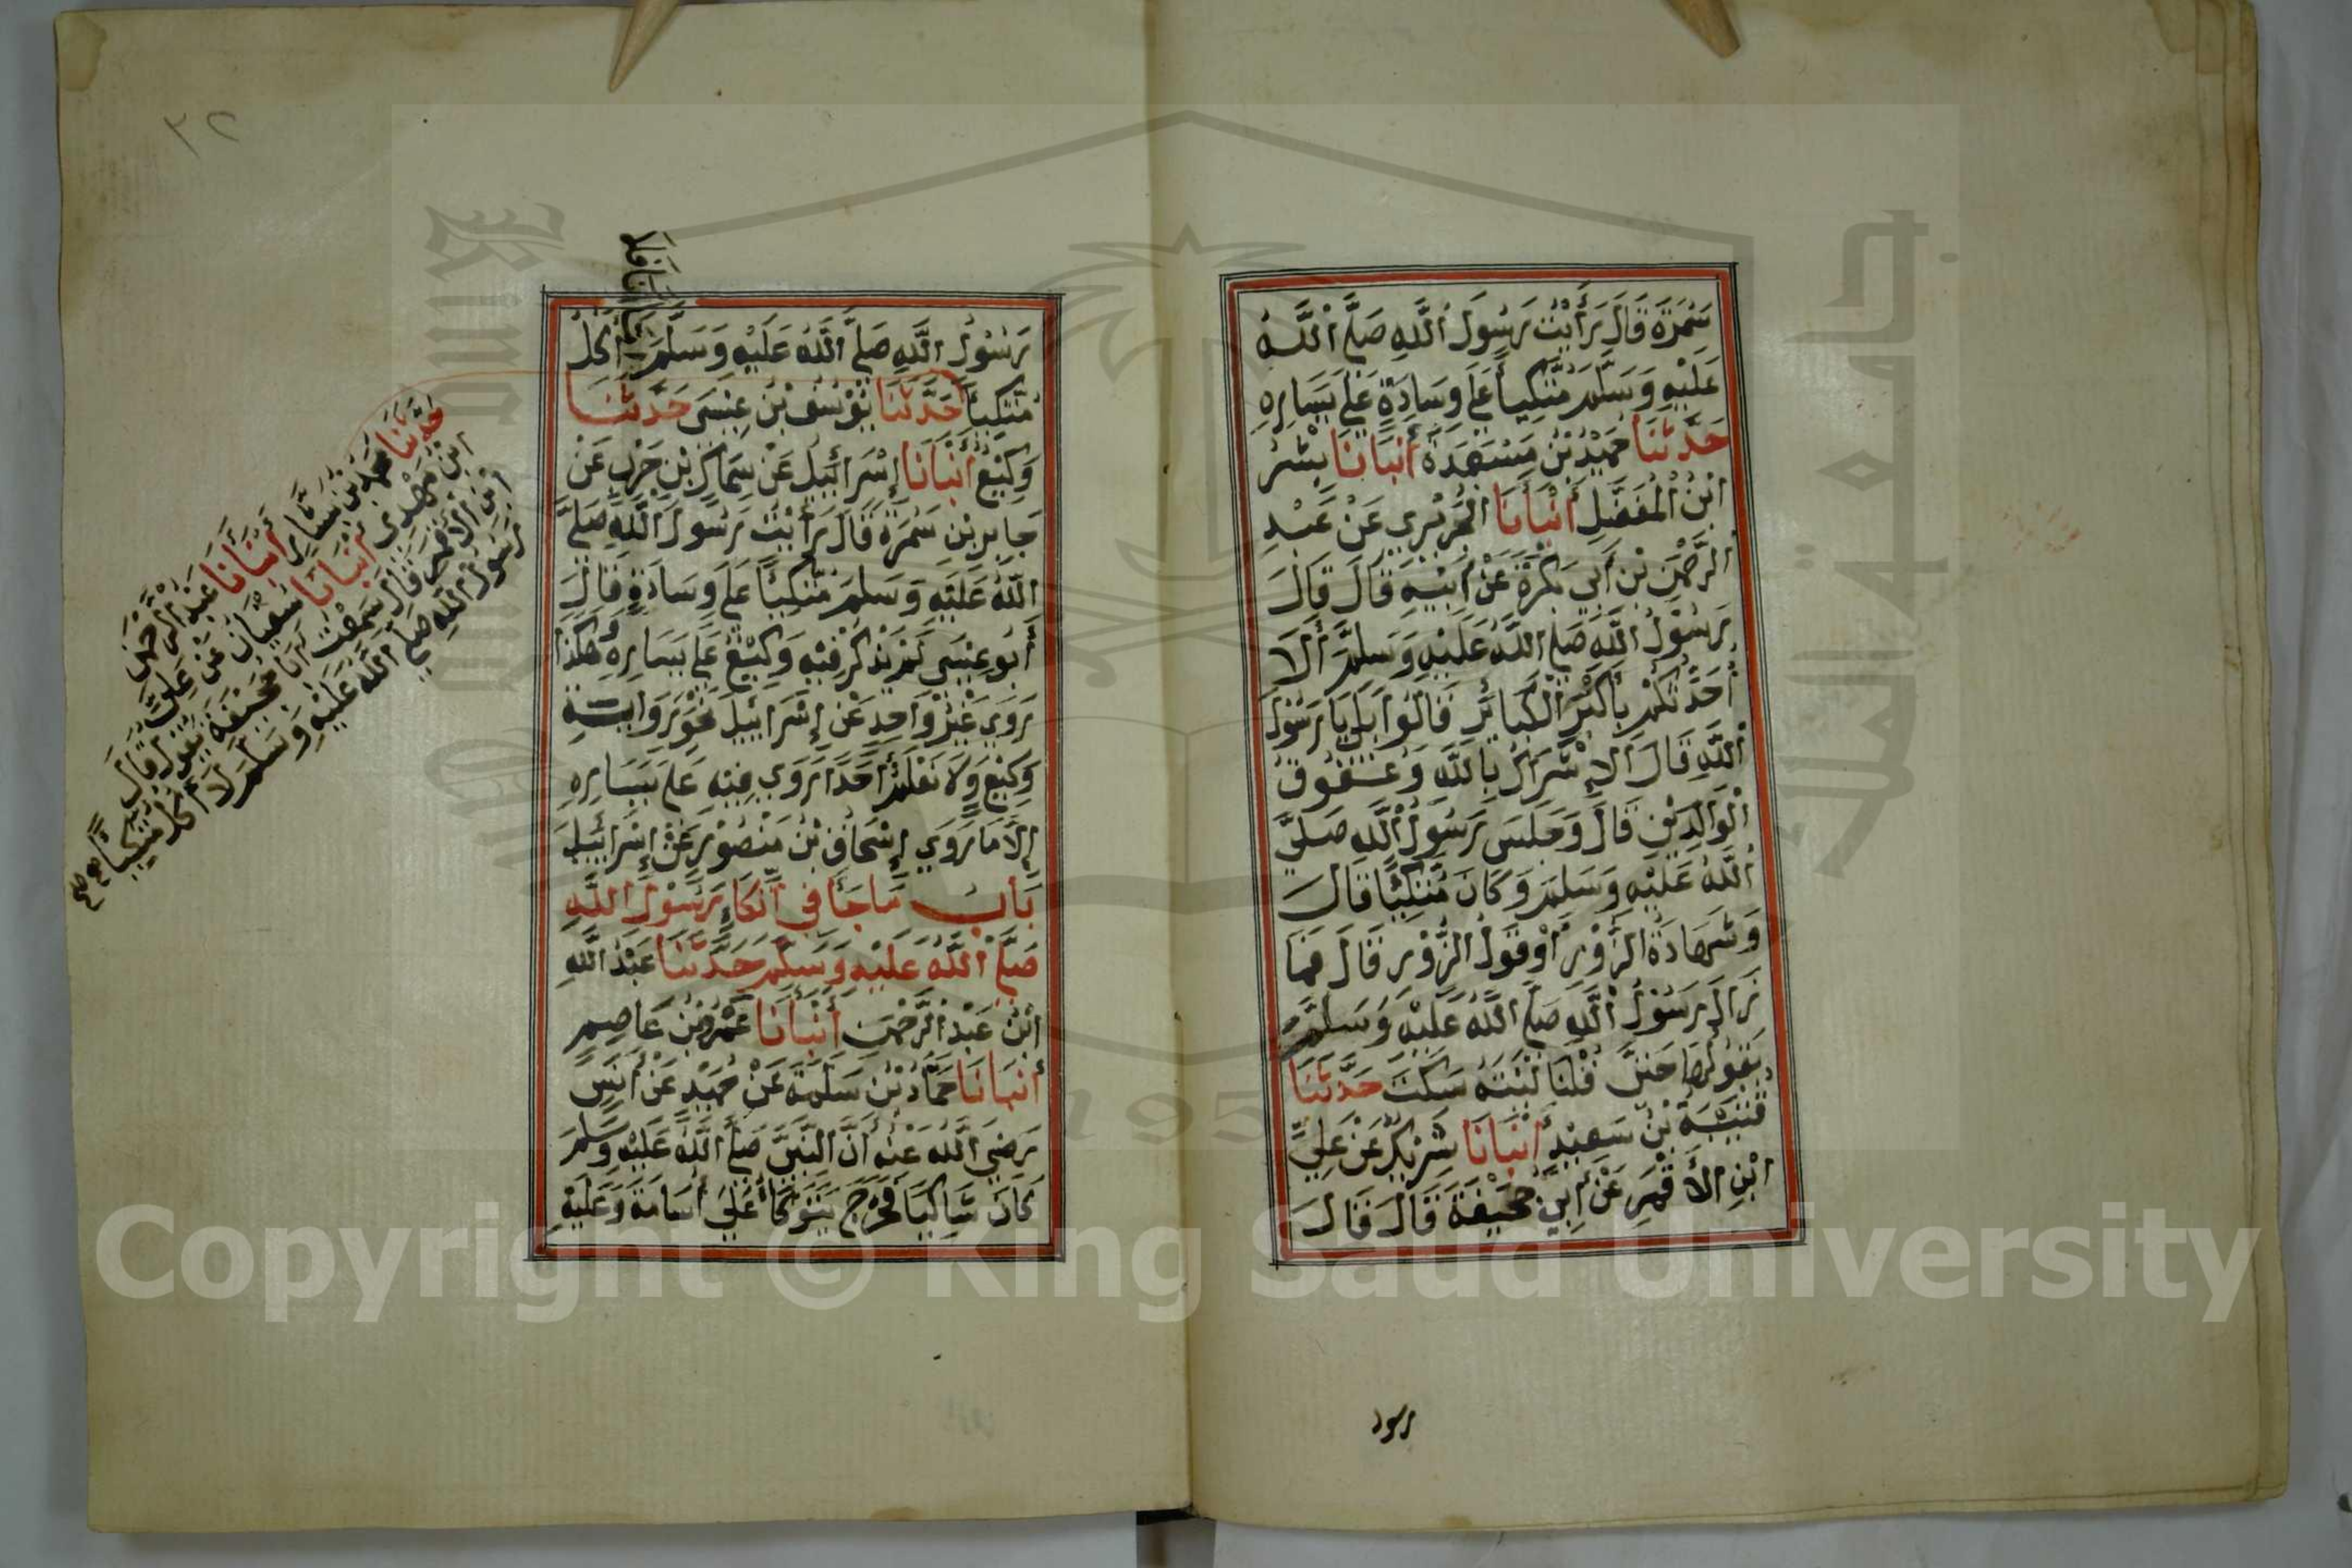 سَمُرَةَ قَالَ رَأَيْتُ رَسُولَ اللَّهِ صَلَّى اللَّهُ
عَلَيْهِ وَسَلَّمَ مُتَّكِيأً عَلَى وِسَادَةٍ عَلَى يَسَارِهِ
حَدَّثَنَا حُمَيْدُ بْنُ مَسْعَدَةَ أَنْبَانَا بِشْرُ
ابْنُ الْمُفَضَّلِ أَنْبَأَنَا الْجُرَيْرِي عَنْ عَبْدِ
الرَّحْمَنِ بْنِ أَبِي بَكْرَةَ عَنْ أَبِيْهِ قَالَ قَالَ
رَسُوْلُ اللَّهِ صَلَّى اللَّهُ عَلَيْهِ وَسَلَّمَ أَلَا
أُحَدِّثُكُمْ بِأَكْبَرِ الْكَبَائِرِ قَالُوا بَلَى يَا رَسُوْلَ
اللَّهِ قَالَ الْإِشْرَاكُ بِاللَّهِ وَعُقُوْقُ
الْوَالِدَيْنِ قَالَ وَجَلَسَ رَسُوْلُ اللَّهِ صَلَّى
اللَّهُ عَلَيْهِ وَسَلَّمَ وَكَانَ مُتَّكِئًا قَالَ
وَشَهَادَةُ الزُّوْرِ أَوْ قَوْلُ الزُّوْرِ قَالَ فَمَا
زَالَ رَسُوْلُ اللَّهِ صَلَّى اللَّهُ عَلَيْهِ وَسَلَّمَ
يَقُوْلُهَا حَتَّى قُلْنَا لَيْتَهُ سَكَتَ حَدَّثَنَا
قُتَيْبَةُ بْنُ سَعِيْدٍ أَنْبَانَا شَرِيْكٌ عَنْ عَلِيِّ
ابْنِ الأَقْمَرِ عَنْ أَبِي جُحَيْفَةَ قَالَ قَالَ
رسول
٣٢
أَمَّا أَنَا فَلَا
رَسُوْلُ اللَّهِ صَلَّى اللَّهُ عَلَيْهِ وَسَلَّمَ آكُلُ
مُتَّكِيأً حَدَّثَنَا يُوْسُفُ بْنُ عِيْسَى حَدَّثَنَا
وَكِيْعٌ أَنْبَانَا إِسْرَائِيْلُ عَنْ سِمَاكِ بْنِ حَرْبٍ عَنْ
جَابِرِ بْنِ سَمُرَةَ قَالَ رَأَيْتُ رَسُوْلَ اللَّهِ صَلَّى
اللَّهُ عَلَيْهِ وَسَلَّمَ مُتَّكِيأً عَلَى وِسَادَةٍ قَالَ
أَبُو عِيْسَى لَمْ يَذْكُرْ فِيْهِ وَكِيْعٌ عَلَى يَسَارِهِ وَهَكَذَا
رَوَى غَيْرُ وَاحِدٍ عَنْ إِسْرَائِيْلَ نَحْوَ رِوَايَةِ
وَكِيْعٍ وَلَا نَعْلَمُ أَحَدًا رَوَى فِيْهِ عَلَى يَسَارِهِ
إِلَّا مَا رَوَى إِسْحَاقُ بْنُ مَنْصُوْرٍ عَنْ إِسْرَائِيْلَ
بَابُ مَا جَأَ فِي اتِّكَاءِ رَسُوْلِ اللَّهِ
صَلَّى اللَّهُ عَلَيْهِ وَسَلَّمَ حَدَّثَنَا عَبْدُ اللَّهِ
ابْنُ عَبْدِ الرَّحْمَنِ أَنْبَأَنَا عَمْرُو بْنُ عَاصِمٍ
أَنْبَانَا حَمَّادُ بْنُ سَلَمَةَ عَنْ حُمَيْدٍ عَنْ أَنَسٍ
رَضِيَ اللَّهُ عَنْهُ أَنَّ النَّبِيَّ صَلَّى اللَّهُ عَلَيْهِ وَسَلَّمَ
كَانَ شَاكِيًا فَخَرَجَ يَتَوَكَّأُ عَلَى أُسَامَةَ وَعَلَيْهِ
حَدَّثَنَا مُحَمَّدُ بْنُ بَشَّارٍ أَنْبَأَنَا عَبْدُ الرَّحْمَنِ
ابْنُ مَهْدِي أَنْبَانَا سُفْيَانُ عَنْ عَلِيِّ
ابْنِ الأَقْمَرِ قَالَ سَمِعْتُ أَبَا جُحَيْفَةَ يَقُوْلُ قَالَ
رَسُوْلُ اللَّهِ صَلَّى اللَّهُ عَلَيْهِ وَسَلَّمَ لَا آكُلُ مُتَّكِيأً صح
Copyright © King Saud University
195